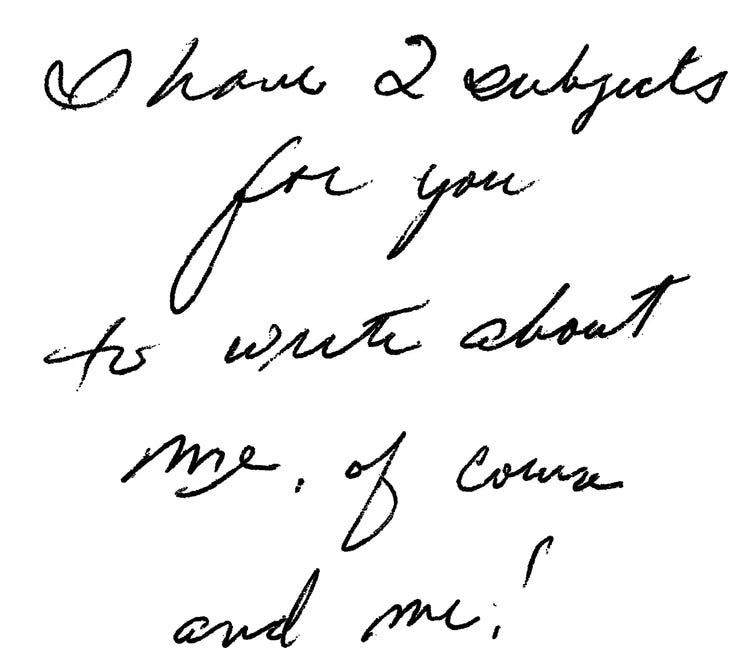 I have 2 subjects
for you
to write about
me, of course
and me!